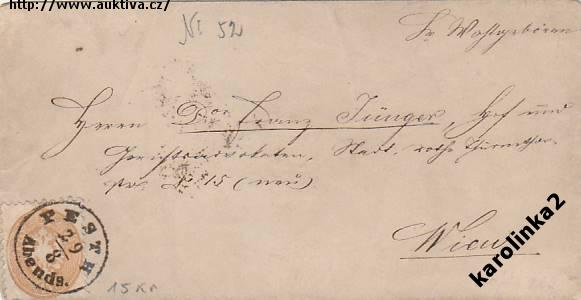 http://www.auktiva.cz/
No 52
Sr Wohlgeboren
Herrn Dor Franz Jünger, Hof und
Gerichtsadvokaten, Stadt, rothe Thurmthor
No 15 (neu)
Wien
PESTH
29/8
Abends.
15 Kr
karolinka2